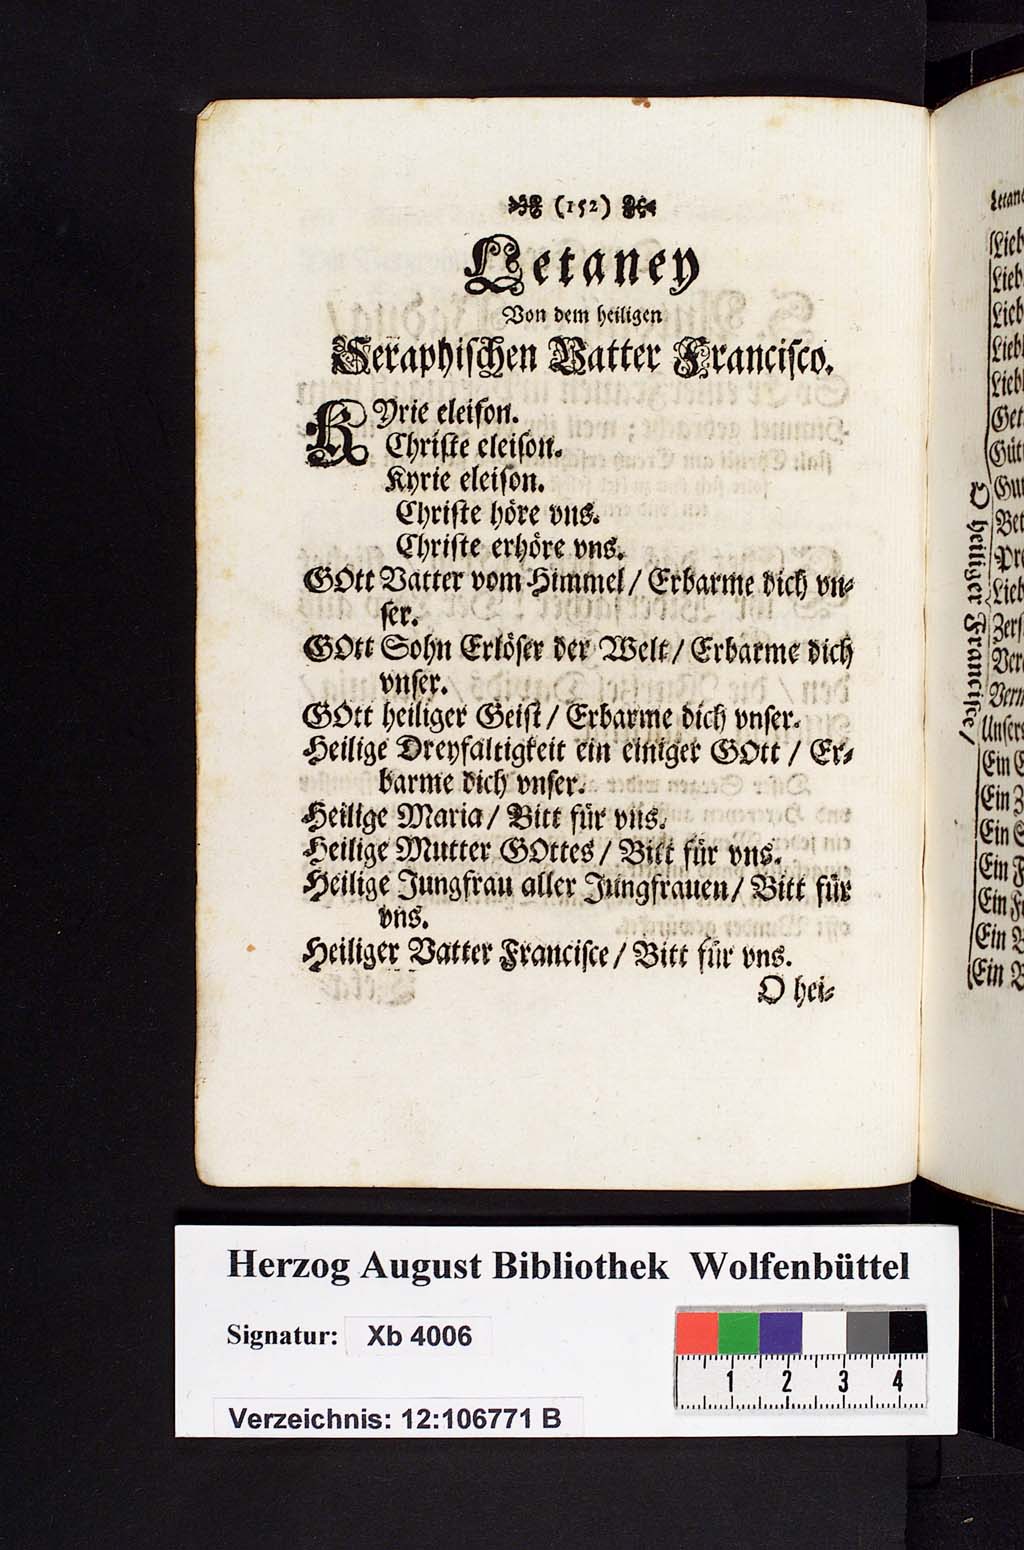 (152)
Letaney
Von dem heiligen
Seraphischen Vatter Francisco.
KYrie eleison.
Christe eleison.
Kyrie eleison.
Christe höre vns.
Christe erhöre vns.
GOtt Vatter vom Himmel / Erbarme dich vn-
ser.
GOtt Sohn Erlöser der Welt / Erbarme dich
vnser.
GOtt heiliger Geist / Erbarme dich vnser.
Heilige Dreyfaltigkeit ein einiger GOtt / Er-
barme dich vnser.
Heilige Maria / Bitt für vns.
Heilige Mutter GOttes / Bitt für vns.
Heilige Jungfrau aller Jungfrauen / Bitt für
vns.
Heiliger Vatter Francisce / Bitt für vns.
O hei-
O heiliger Francisce /
Ein
Ein
Ein
Ein
Ein
Ein
Ein
Herzog August Bibliothek Wolfenbüttel
Signatur: Xb 4006
1 2 3 4
Verzeichnis: 12:106771 B